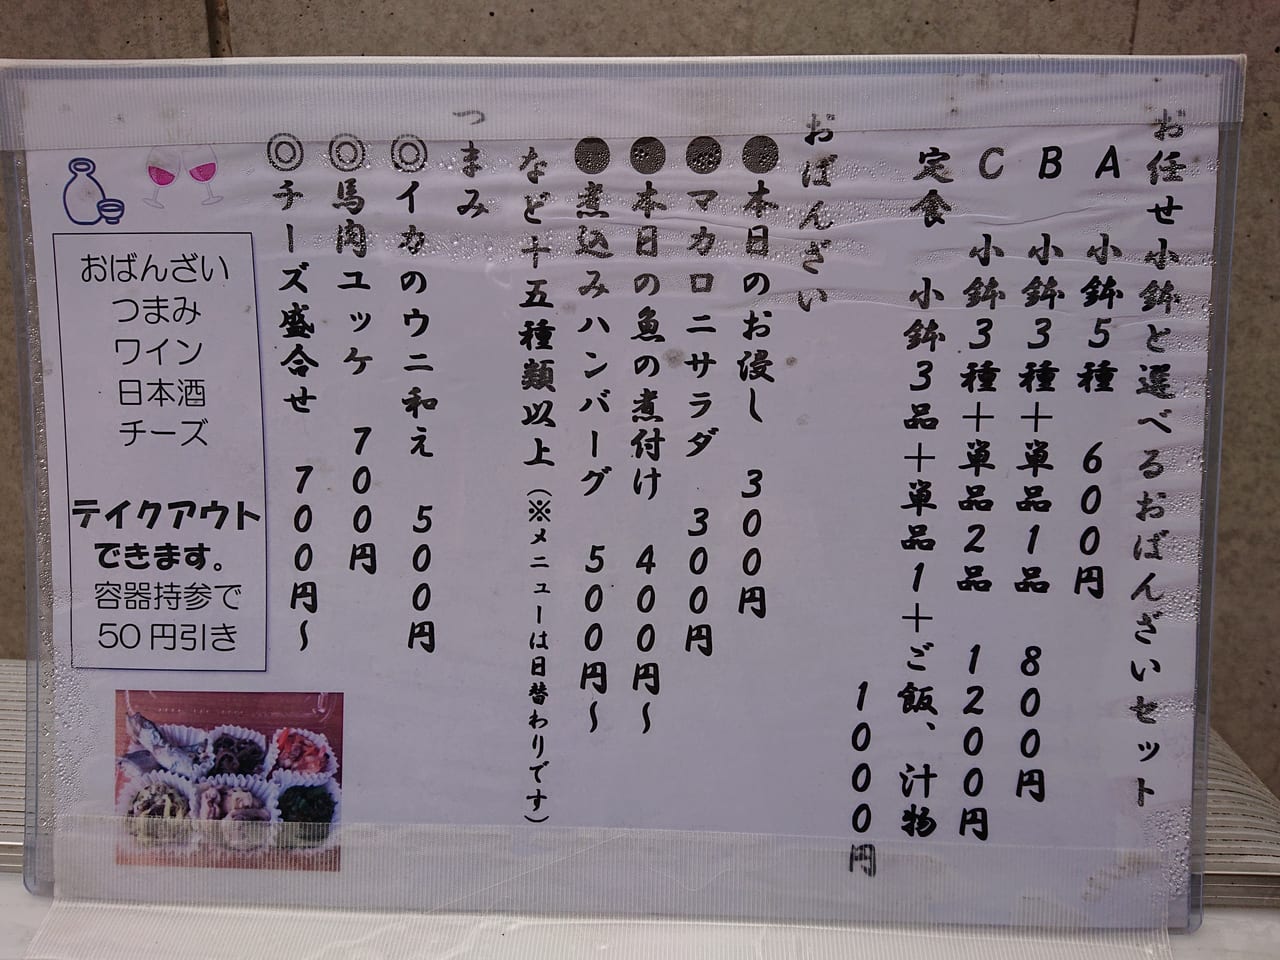 お任せ小鉢と選べるおばんざいセット
A 小鉢5種 600円
B 小鉢3種＋単品1品 800円
C 小鉢3種＋単品2品 1200円
定食 小鉢3品＋単品1＋ご飯、汁物
1000円
おばんざい
●本日のお浸し 300円
●マカロニサラダ 300円
●本日の魚の煮付け 400円～
●煮込みハンバーグ 500円～
など十五種類以上（※メニューは日替わりです）
つまみ
◎イカのウニ和え 500円
◎馬肉ユッケ 700円
◎チーズ盛合せ 700円～
おばんざい
つまみ
ワイン
日本酒
チーズ
テイクアウト
できます。
容器持参で
50円引き